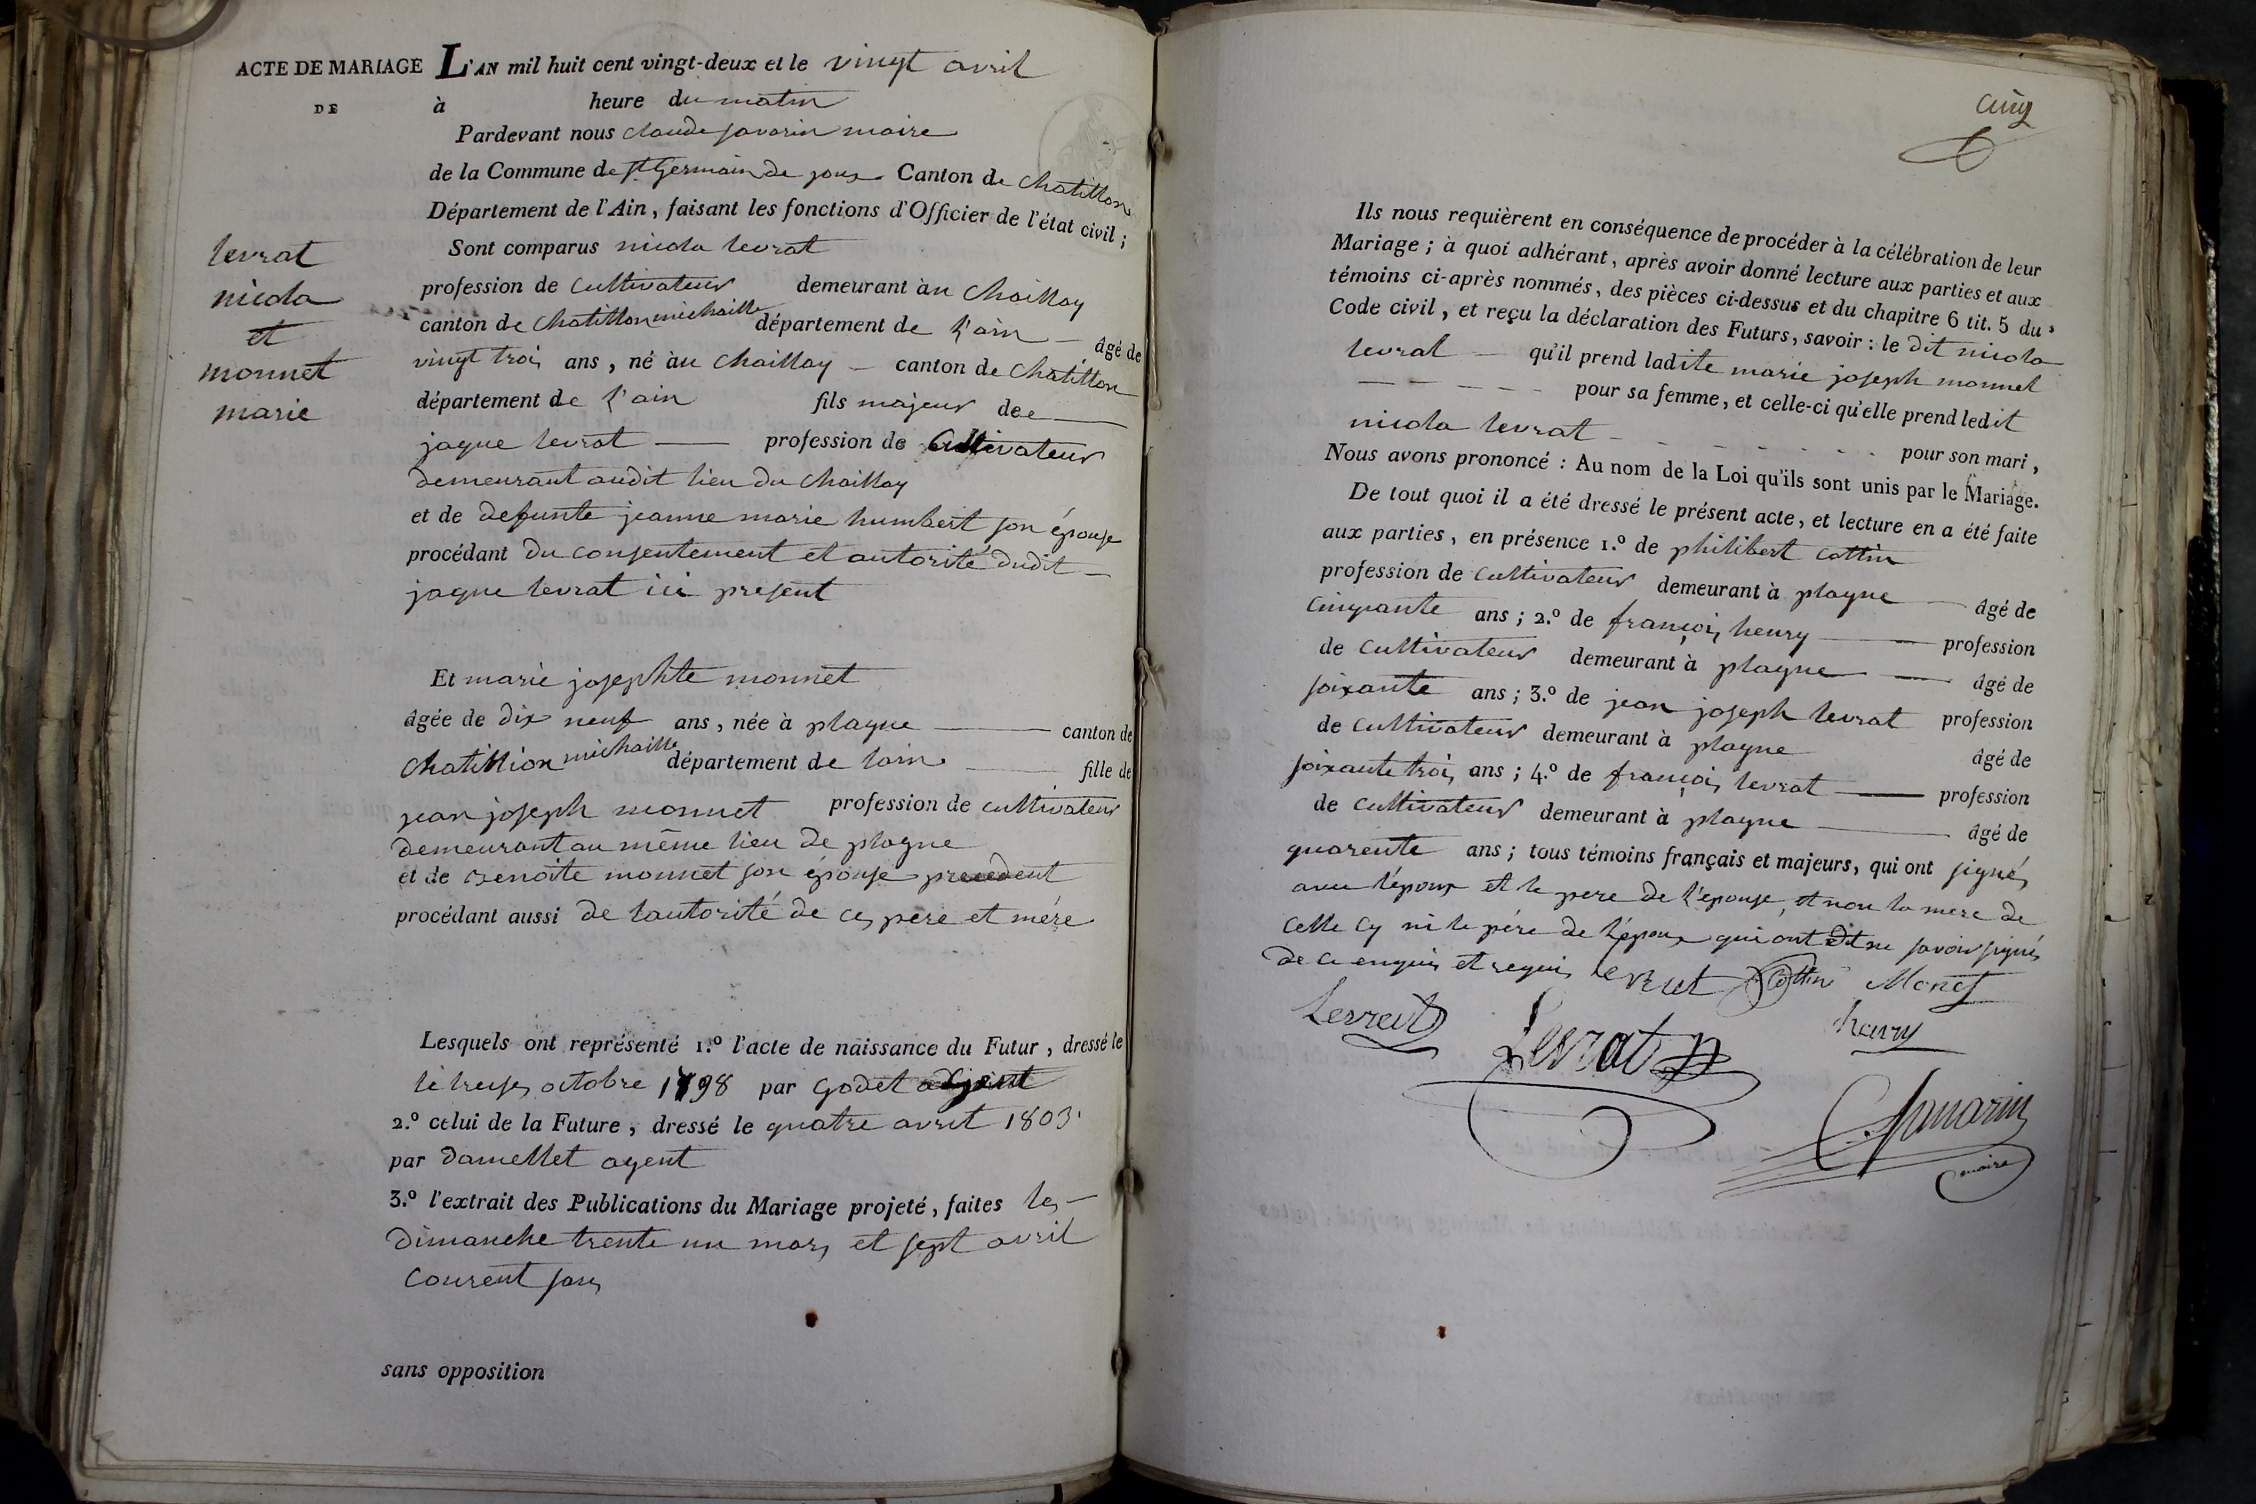 ACTE DE MARIAGE L'AN mil huit cent vingt-deux et le vingt avril
DE
à heure du matin
Pardevant nous claude savarin maire
de la Commune de St Germain de joux Canton de chatillon
Département de l'Ain, faisant les fonctions d'Officier de l'état civil ;
Sont comparus nicola levrat
levrat
nicola
et
monnet
marie
profession de cultivateur demeurant àu choillay
canton de chatillon michaille département de l'ain âgé de
vingt trois ans, né àu choillay canton de chatillon
département de l'ain fils majeur dee
jaque levrat profession de cultivateur
demeurant audit lieu du choillay
et de defunte jeanne marie humbert son épouse
procédant du consentement et autorité dudit
jaque levrat ici present
Et marie josephte monnet
âgée de dix neuf ans, née à plagne canton de
chatillion michaille département de lain fille de
jean joseph monnet profession de cultivateur
demeurant au même lieu de plagne
et de benoite monnet son épouse precedent
procédant aussi de lautorité de ces pere et mére
Lesquels ont représenté 1.º l'acte de naissance du Futur, dressé le
le treize octobre 1798 par godet adjoint
2.º celui de la Future, dressé le quatre avril 1803
par damellet agent
3.º l'extrait des Publications du Mariage projeté, faites les
dimanche trente un mars et sept avril
courent sans
sans opposition
cinq
Ils nous requièrent en conséquence de procéder à la célébration de leur
Mariage ; à quoi adhérant, après avoir donné lecture aux parties et aux
témoins ci-après nommés, des pièces ci-dessus et du chapitre 6 tit. 5 du
Code civil, et reçu la déclaration des Futurs, savoir : le dit nicola
levrat qu'il prend ladite marie joseph monnet
pour sa femme, et celle-ci qu'elle prend ledit
nicola levrat pour son mari,
Nous avons prononcé : Au nom de la Loi qu'ils sont unis par le Mariage.
De tout quoi il a été dressé le présent acte, et lecture en a été faite
aux parties, en présence 1.º de philibert cottin
profession de cultivateur demeurant à plagne âgé de
cinquante ans ; 2.º de françois henry profession
de cultivateur demeurant à plagne âgé de
soixante ans ; 3.º de jean joseph levrat profession
de cultivateur demeurant à plagne âgé de
soixante trois ans ; 4.º de françois levrat profession
de cultivateur demeurant à plagne âgé de
quarente ans ; tous témoins français et majeurs, qui ont signés
avec l'époux et le pere de l'épouse, et non la mere de
celle cy ni le pére de l'époux qui ont dit ne savoir signés
de ce enquis et requis levrat Cottin Monet
Levrat Levrat henry
C. Savarin
maire